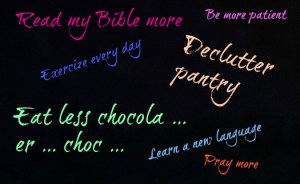 Read my Bible more
Be more patient
Exercize every day
Declutter
pantry
Eat less chocola ...
er ... choc ...
Learn a new language
Pray more